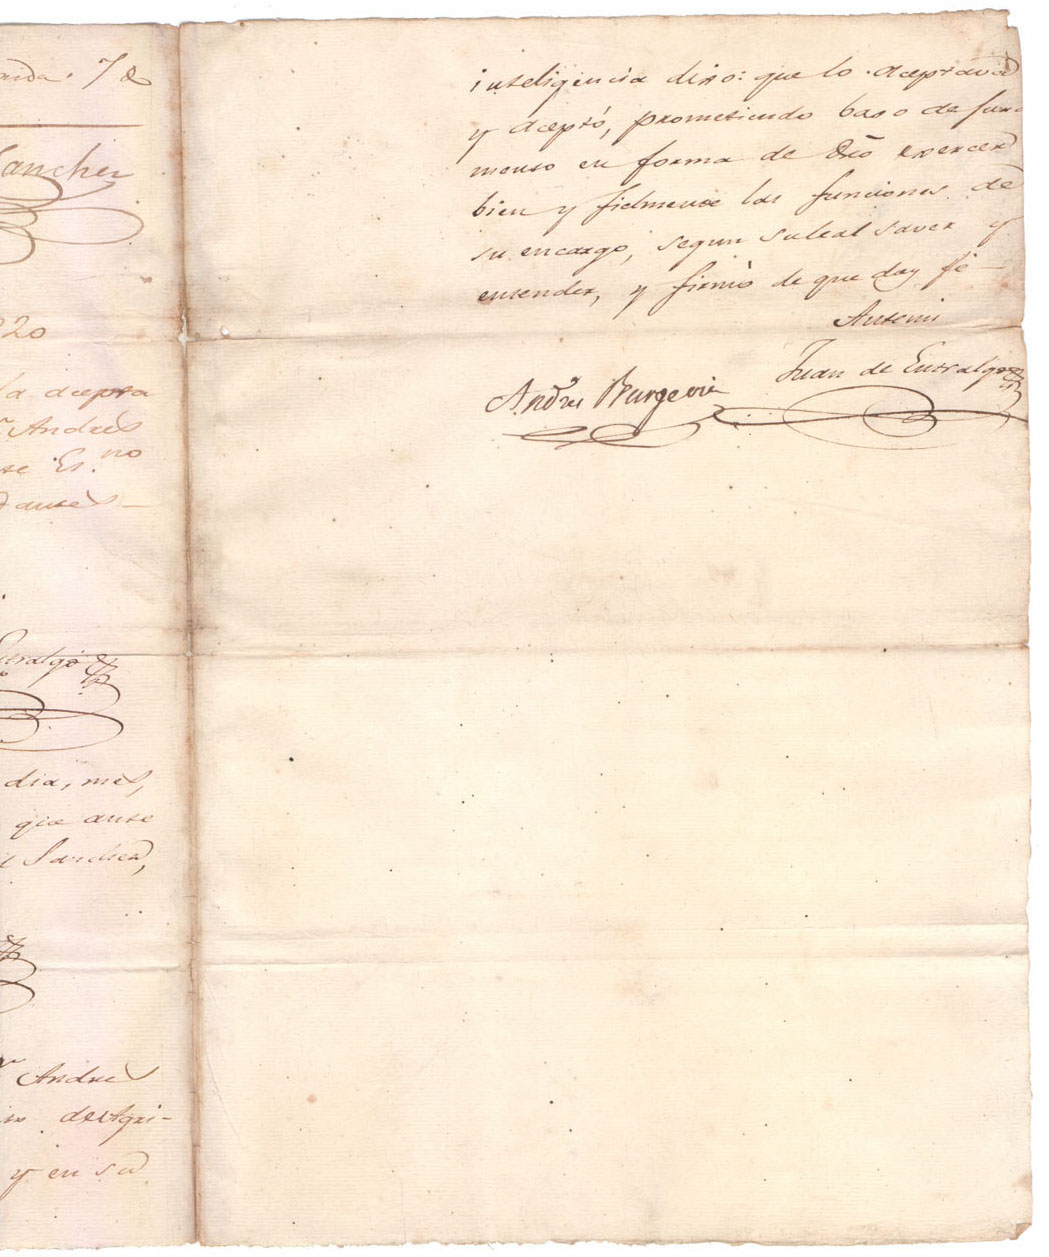 7 de
Sanchez
820
la acepta
Andres
Es.no
antes
Entralgo
dia, mes,
que ante
Sanchez,
Andres
de Agri-
y en su
inteligencia dixo: que lo aceptava
y aceptó, prometiendo baso de jura
mento en forma de Dro exercer
bien y fielmente las funciones de
su encargo, segun su leal saver y
entender, y firmó de que doy fé
Antemi
Juan de Entralgo
Andres